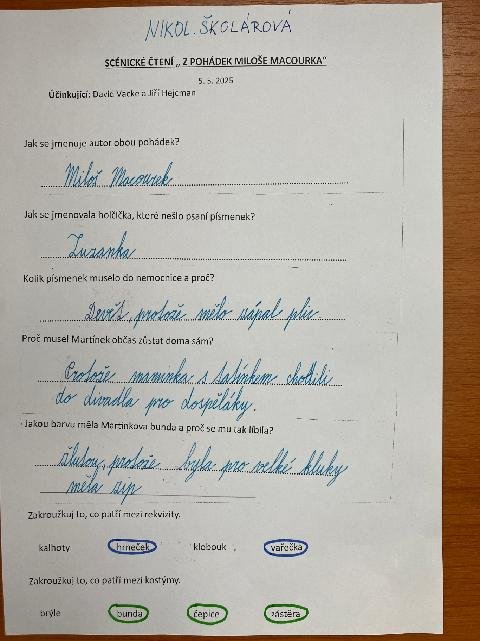 NIKOL ŠKOLÁROVÁ
SCÉNICKÉ ČTENÍ „ Z POHÁDEK MILOŠE MACOURKA“
5. 5. 2025
Účinkující: David Vacke a Jiří Hejcman
Jak se jmenuje autor obou pohádek?
Miloš Macourek
Jak se jmenovala holčička, které nešlo psaní písmenek?
Zuzanka
Kolik písmenek muselo do nemocnice a proč?
Devět, protože mělo zápal plic
Proč musel Martínek občas zůstat doma sám?
Protože maminka s tatínkem chodili
do divadla pro dospěláky.
Jakou barvu měla Martínkova bunda a proč se mu tak líbila?
žlutou, protože byla pro velké kluky
měla zip
Zakroužkuj to, co patří mezi rekvizity.
kalhoty hrneček klobouk vařečka
Zakroužkuj to, co patří mezi kostýmy.
brýle bunda čepice zástěra